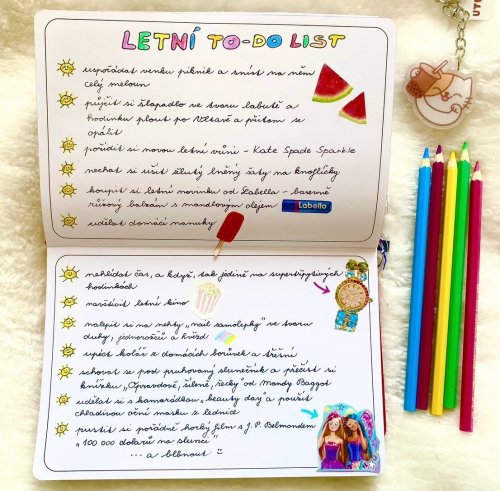 LETNÍ TO-DO LIST
uspořádat venku piknik a sníst na něm
celý meloun
půjčit si šlapadlo ve tvaru labutě a
hodinku plout po Vltavě a přitom se
opálit
pořídit si novou letní vůni - Kate Spade Sparkle
nechat si ušít žlutý lněný šaty na knoflíčky
koupit si letní novinku od Labella - barevně
růžový balzám s mandlovým olejem
Labello
udělat domácí nanuky
nehlídat čas, a když, tak jedině na supertřpytivých
hodinkách
navštívit letní kino
nalepit si na nehty „nail samolepky" ve tvaru
duhy, jednorožců a hvězd
upéct koláč z domácích borůvek a třešní
schovat se pod pruhovaný slunečník a přečíst si
knížku „Opravdově, šíleně, řecky" od Mandy Baggot
udělat si s kamarádkou „beauty day" a použít
chladivou oční masku z lednice
pustit si pořádně horký film s J. P. Belmondem
„100 000 dolarů na slunci"
... a blbnout